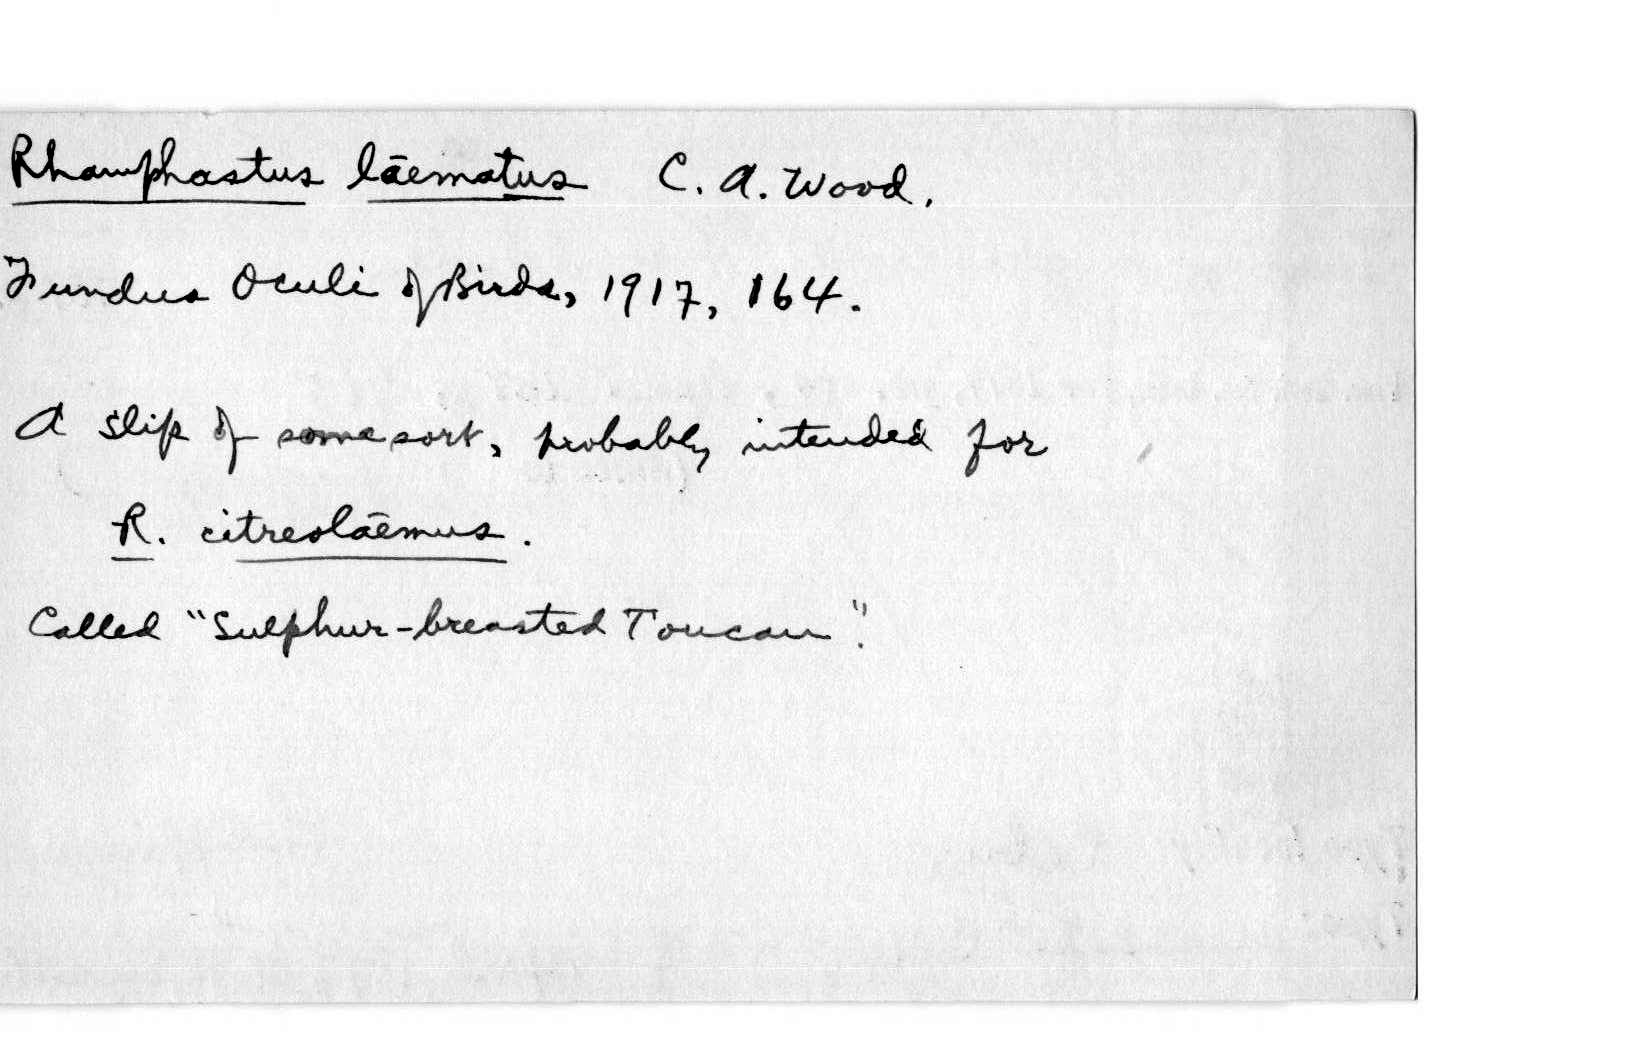 Rhamphastus lāematus C. A. Wood.
Fundus Oculi of Birds, 1917, 164.
A slip of some sort, probably intended for
R. citreolāemus.
Called "Sulphur-breasted Toucan".